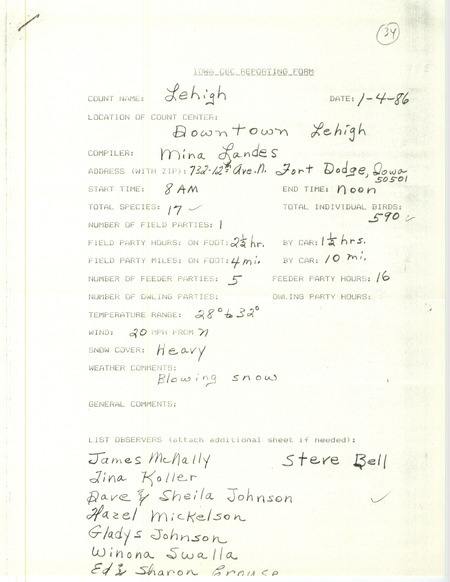 34
IOWA CBC REPORTING FORM
COUNT NAME: Lehigh DATE: 1-4-86
LOCATION OF COUNT CENTER:
Downtown Lehigh
COMPILER: Mina Landes
ADDRESS (WITH ZIP): 732-12th Ave. N. Fort Dodge, Iowa
50501
START TIME: 8 AM END TIME: Noon
TOTAL SPECIES: 17 ✓ TOTAL INDIVIDUAL BIRDS:
590 ✓
NUMBER OF FIELD PARTIES: 1
FIELD PARTY HOURS: ON FOOT: 2½ hr. BY CAR: 1½ hrs.
FIELD PARTY MILES: ON FOOT: 4 mi. BY CAR: 10 mi.
NUMBER OF FEEDER PARTIES: 5 FEEDER PARTY HOURS: 16
NUMBER OF OWLING PARTIES: OWLING PARTY HOURS:
TEMPERATURE RANGE: 28° to 32°
WIND: 20 MPH FROM N
SNOW COVER: Heavy
WEATHER COMMENTS:
Blowing snow
GENERAL COMMENTS:
LIST OBSERVERS (attach additional sheet if needded):
James McNally Steve Bell
Tina Koller
Dave & Sheila Johnson ✓
Hazel Mickelson
Gladys Johnson
Winona Swalla
Ed & Sharon